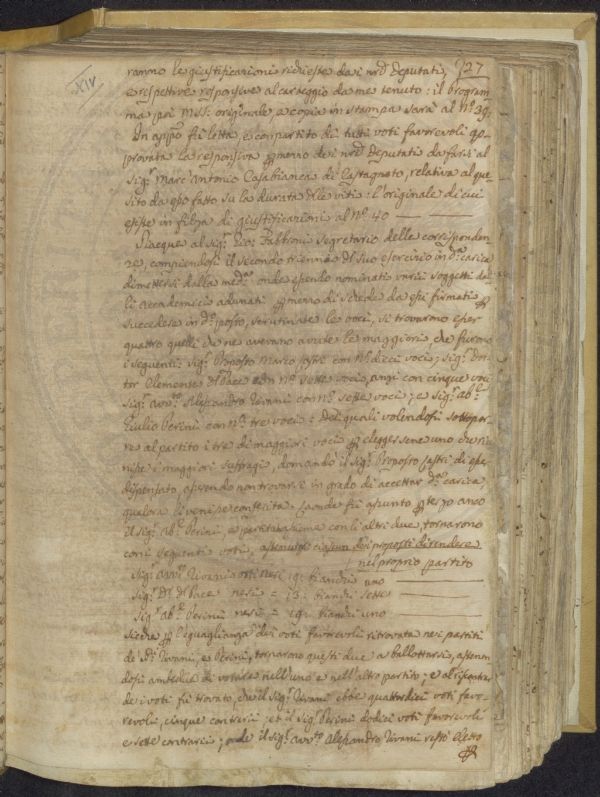 127
XIV
ranno le giustificazioni richieste dai nrd Deputati,
e respettive responsive al carteggio da me tenuto: il Program
ma poi MSS. originale, e copia in stampa sarà al N.º 39.
In app.º fù letta, e con partito di tutti voti favorevoli ap-
provata la responsiva p. meno dei nrd Deputati da farsi al
Sig.r Marc'Antonio Casabianca di Castagneto, relativa al que
sito da esso fatto su la durata delle viti: l'originale di cui
esiste in filza di giustificazioni al N.º 40
Piacque al Sig.r Fabbroni Segretario delle corrisponden
ze, compiendosi il secondo triennio del suo esercizio in d.a carica
dimettersi dalla med.a onde essendo nominati varii soggetti da
li Accademici adunati p. meno di schede da essi firmate p.
succedere in d.o posto, scrutinate le voci, si trovarono esser
quattro quelli che ne avevano avute le maggiori, che furono
i seguenti: Sig.r Proposto Marco Lastri con N.º dieci voci; Sig.r Dot-
tor Clemente del Pace con N.º sette voci, anzi con cinque voci
Sig.r Avv.to Alessandro Rivani con N.º sette voci; e Sig.r Ab.e
Giulio Perini con N.º tre voci: Dei quali volendosi sottopor-
re al partito i tre di maggiori voci p. eleggersene uno che riu-
nisse i maggiori suffragi, domandò il Sig.r Proposto Lastri di esse
dispensato, asserendo non trovarsi in grado di accettar d.a carica,
qualora li venisse conferita. Laonde fu assunto p. terzo anco
il Sig.r Ab.e Perini, e partitatasi con li altri due, tornarono
con i seguenti voti, astenutosi ciascun dei proposti di rendere
nel proprio partito
Sig.r Avv.to Rivani voti neri 19: bianchi uno
Sig.r D.r del Pace neri = 13: bianchi sette
Sig.r Ab.e Perini neri = 19: bianchi uno
Sicchè p. l'eguaglianza dei voti favorevoli ritrovata nei partiti
de' d.i Rivani, e Perini, tornarono questi due a ballottarsi, astenen
dosi ambedue di votare nell'uno e nell'altro partito; e al riscontro
dei voti fu trovato, che il Sig.r Rivani ebbe quattordici voti favo-
revoli, cinque contrarii; et il Sig.r Perini dodici voti favorevoli
e sette contrarii; onde il Sig.r Avv.to Alessandro Rivani restò eletto